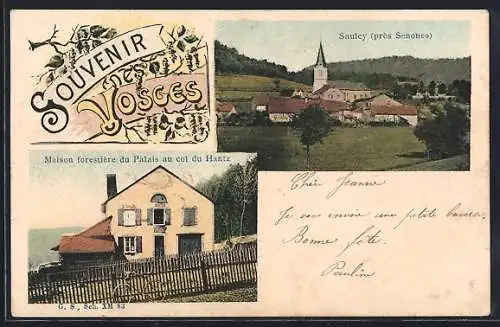 SOUVENIR
DES
VOSGES
Saulcy (près Senones)
Maison forestière du Palais au col du Hantz
Chère Jeanne
Je en envoie une petite
Bonne fête.
Pauline
G. S., Sch. XII 83